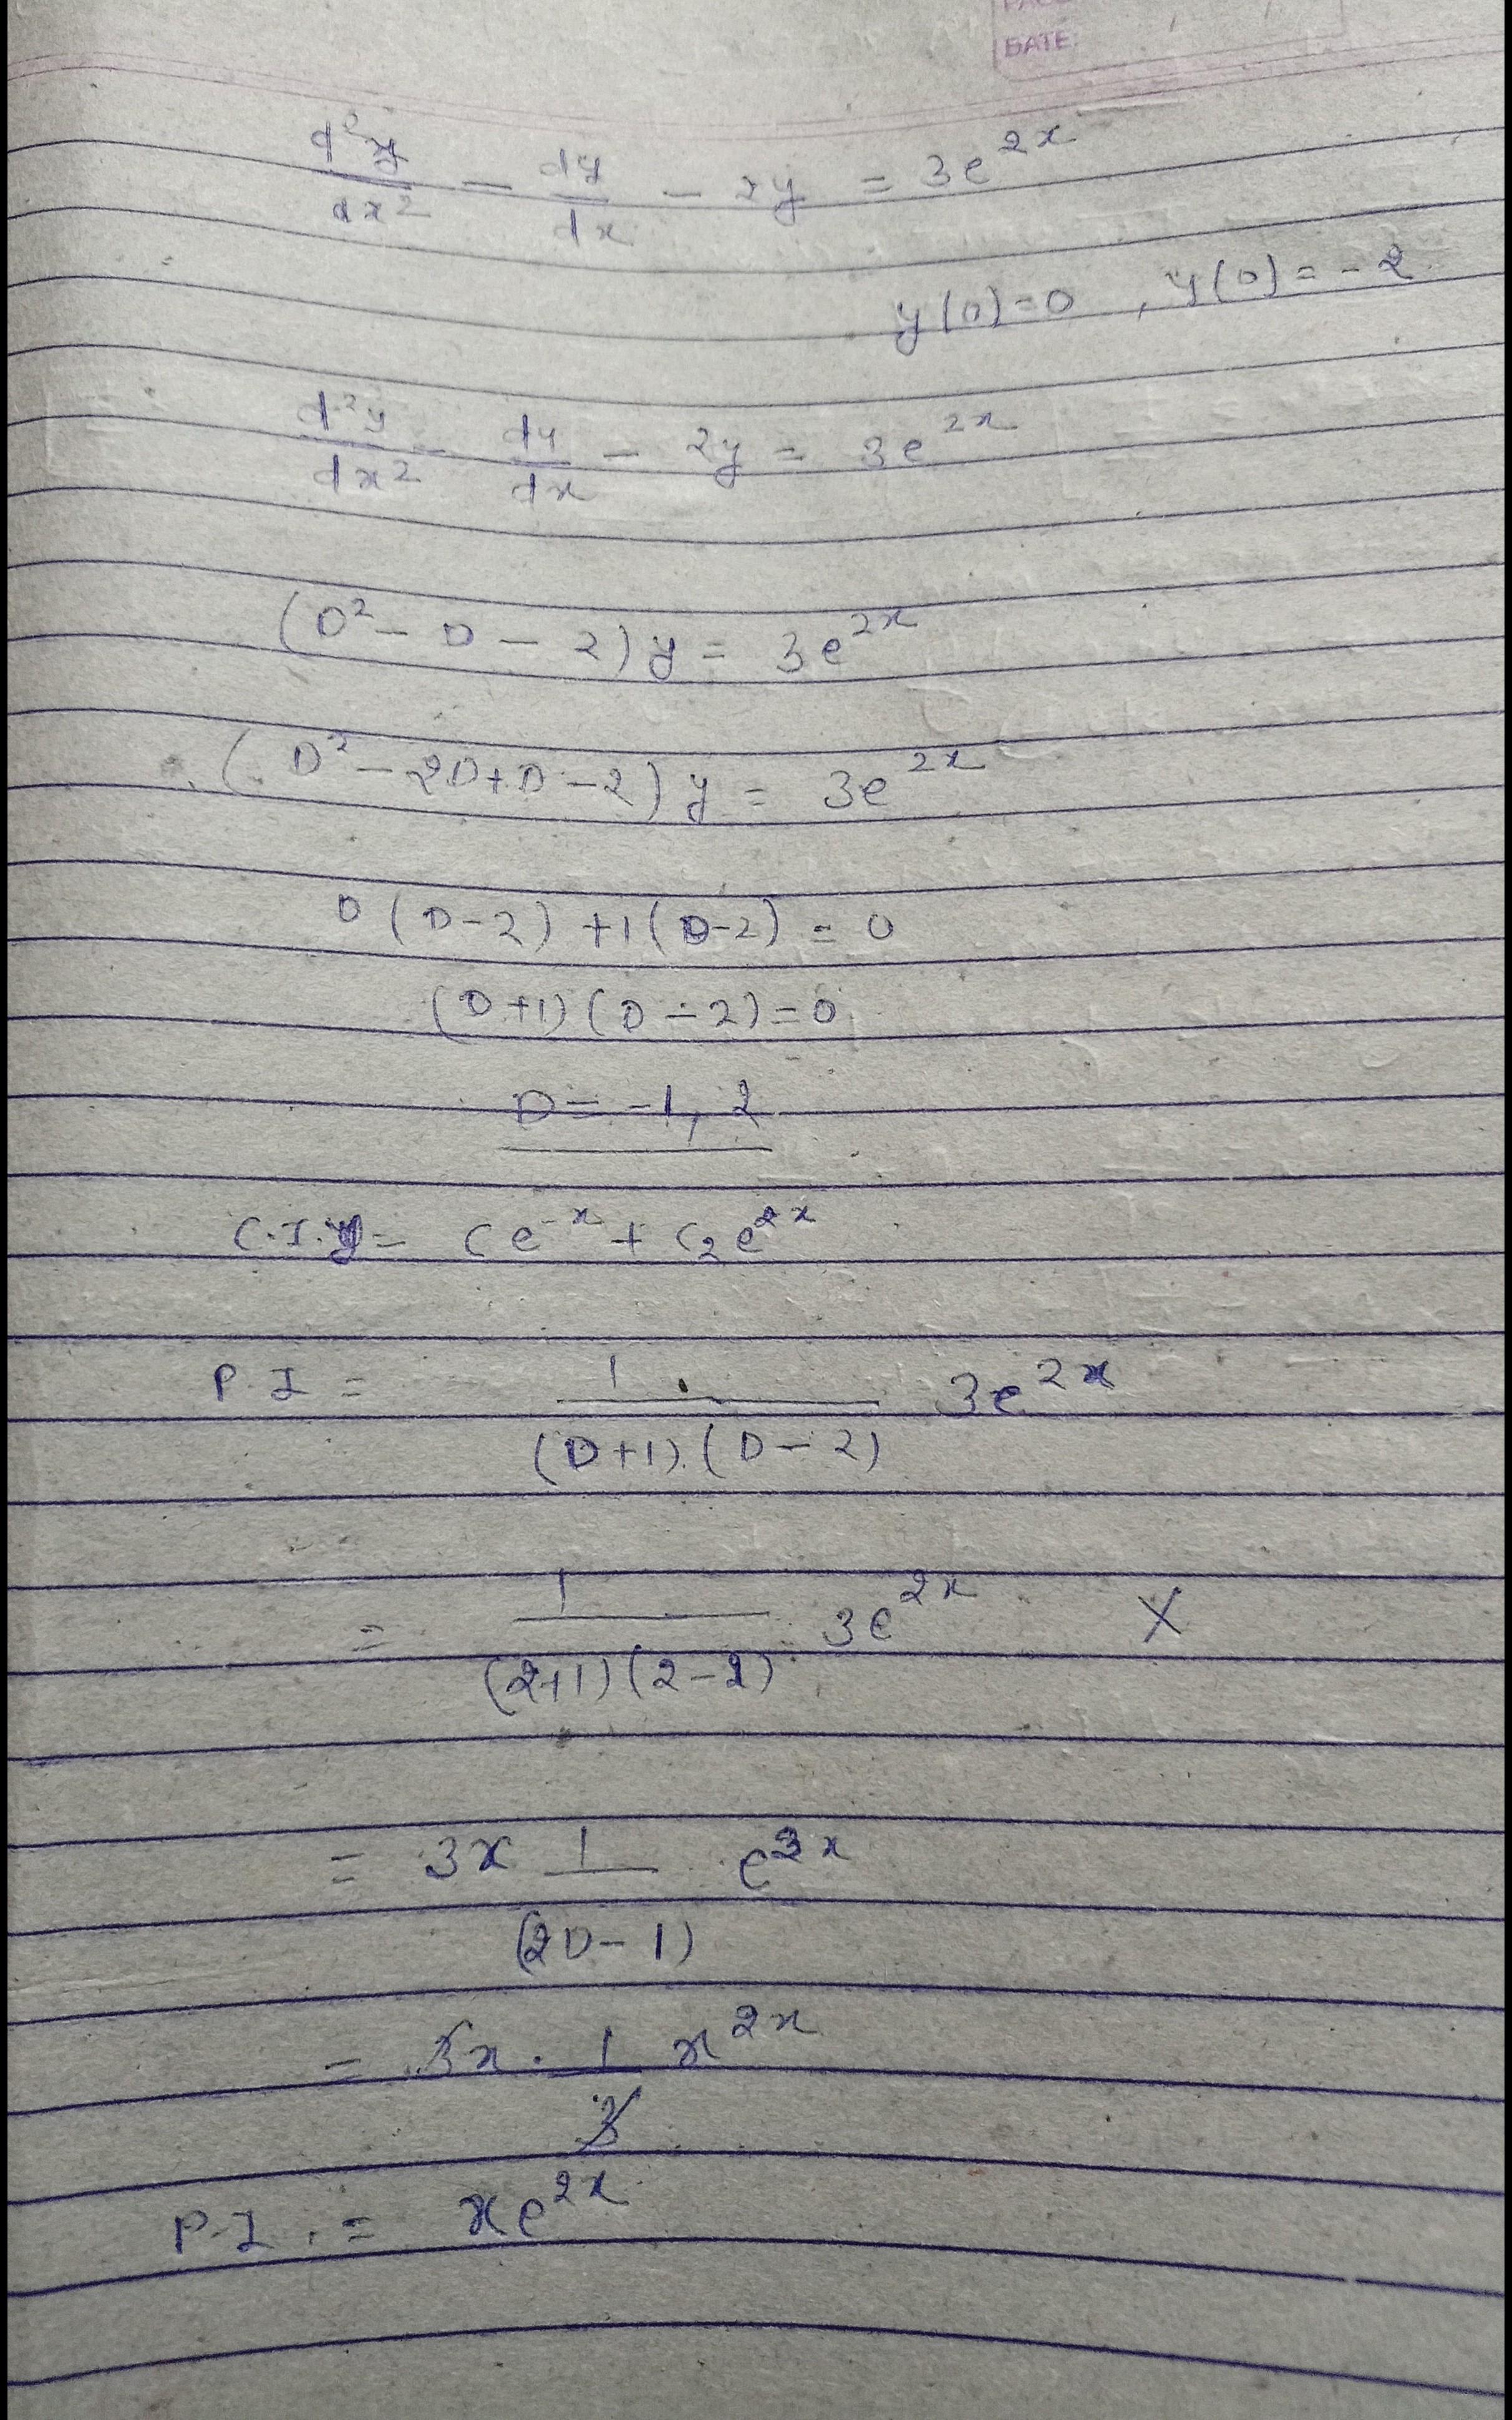 DATE:
d²y/dx² - dy/dx - 2y = 3e^2x
y(0)=0 , y(0)=-2
d²y/dx² - dy/dx - 2y = 3e^2x
(D² - D - 2) y = 3e^2x
(D² - 2D + D - 2) y = 3e^2x
D (D-2) +1 (D-2) = 0
(D+1) (D-2) = 0
D = -1, 2
C.I. y = Ce^-x + C2e^2x
P.I = 1/(D+1).(D-2) 3e^2x
= 1/(2+1)(2-2) 3e^2x X
= 3x 1/(2D-1) e^2x
= 3x . 1/3 x^2x
P.I. = xe^2x